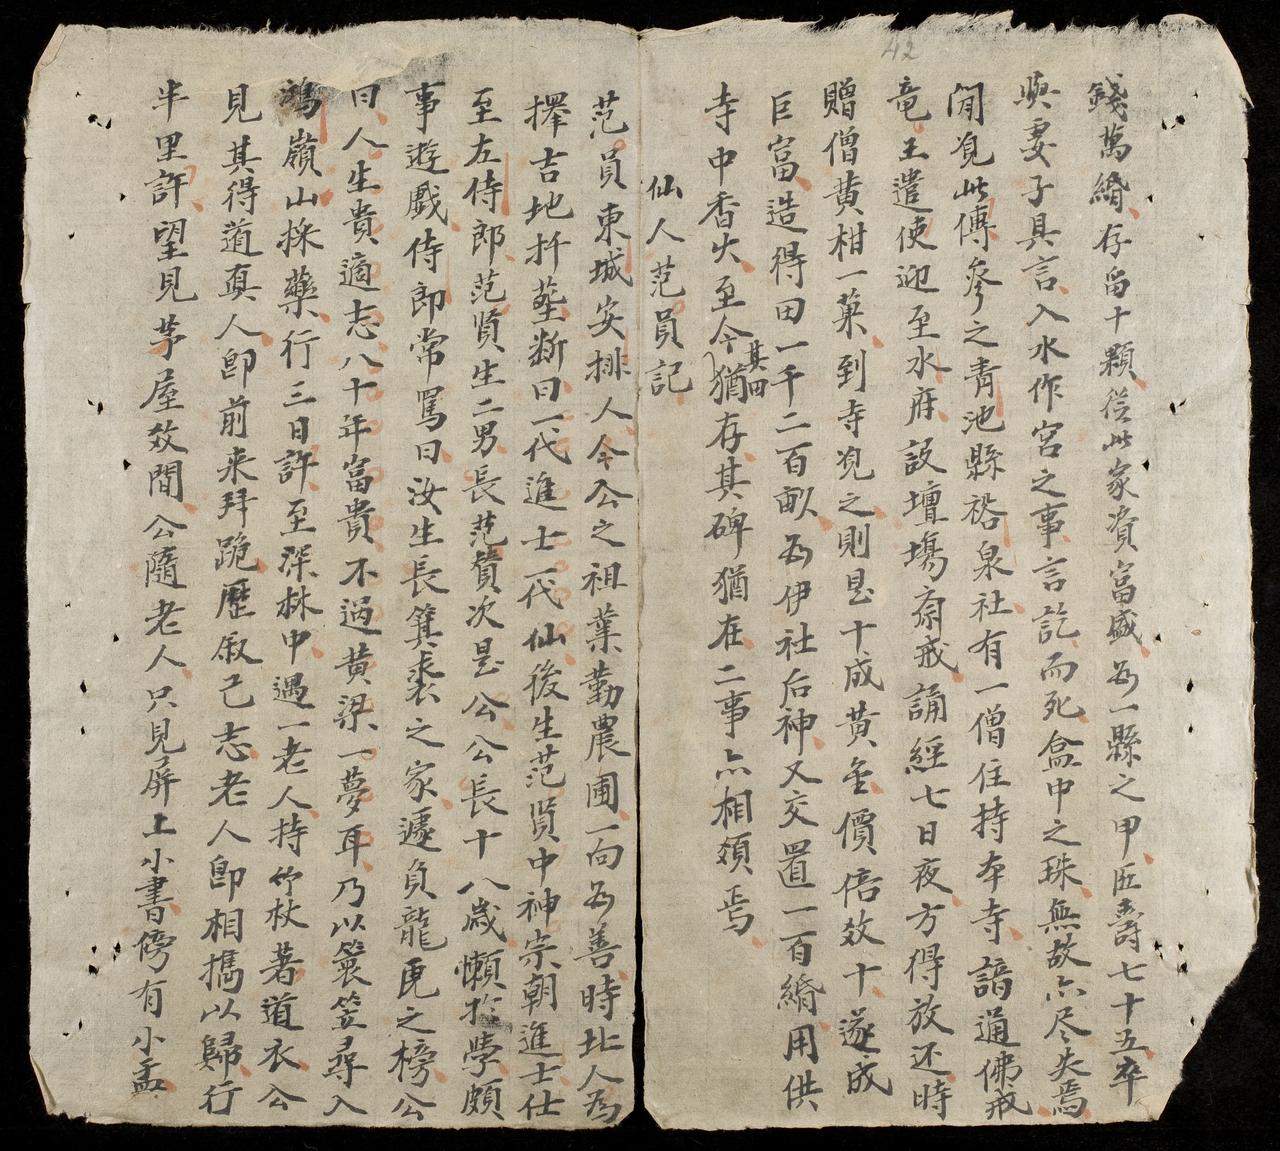 42
錢萬緡存畄十顆從此家資富盛為一縣之甲臣壽七十五卒
與妻子具言入水作宮之事言訖而死盒中之珠無故亦尽失焉
閒覓此傳參之青池縣裕泉社有一僧住持本寺諳通佛戒
竜王遣使迎至水府設壇場齋戒誦經七日夜方得放还時
贈僧黄柑一菓到寺覓之則是十成黄金價倍效十遂成
巨富造得田一千二百畝為伊社后神又交置一百緡用供
寺中香火至今猶存其碑猶在二事亦相類焉
其田
仙人范員記
范員東城安排人今公之祖業勤農圃一向為善時北人為
擇吉地扦塟断曰一代進士一代仙後生范贒中神宗朝進士仕
至左侍郎范贒生二男長范贊次是公公長十八歲懶於學頗
事遊戲侍郎常罵曰汝生長箕裘之家遽負龍乕之榜公
曰人生貴適志八十年富貴不過黄梁一夢耳乃以簑笠尋入
鴻嶺山採藥行三日許至深林中遇一老人持竹杖著道衣公
見其得道真人卽前来拜跪歷叙己志老人卽相攜以歸行
半里許望見茅屋效間公隨老人只見屏上小書傍有小盂